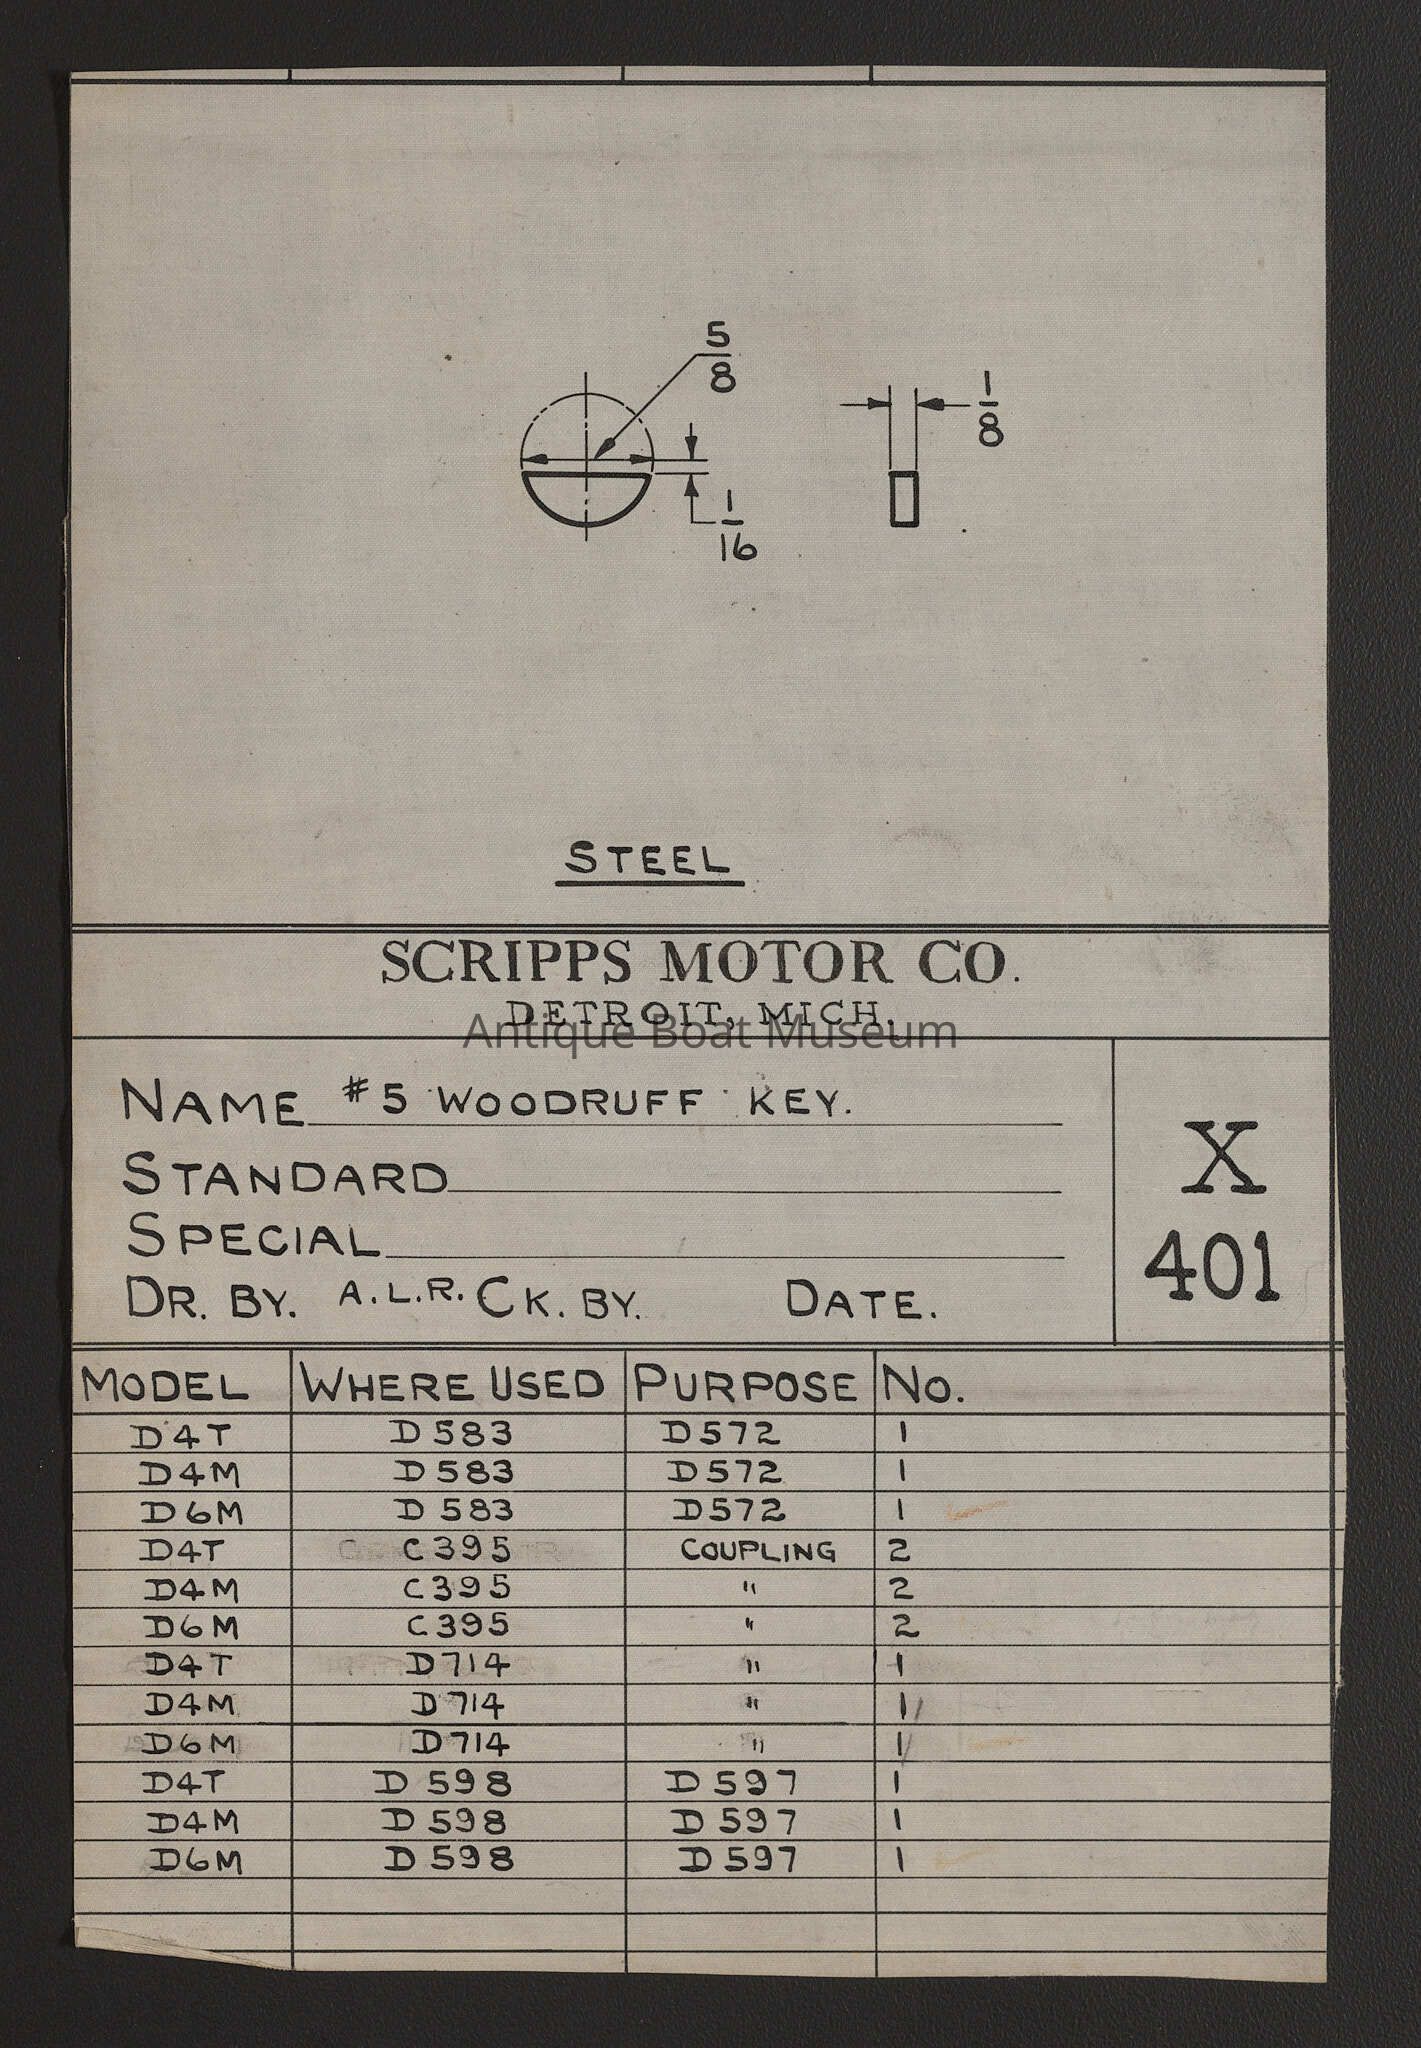 5/8
1/8
1/16
STEEL
SCRIPPS MOTOR CO.
DETROIT, MICH.
Antique Boat Museum
NAME #5 WOODRUFF KEY.
STANDARD
SPECIAL
DR. BY. A.L.R. CK. BY. DATE.
X
401
MODEL WHERE USED PURPOSE NO.
D4T D583 D572 1
D4M D583 D572 1
D6M D583 D572 1
D4T C395 COUPLING 2
D4M C395 " 2
D6M C395 " 2
D4T D714 " 1
D4M D714 " 1
D6M D714 " 1
D4T D598 D597 1
D4M D598 D597 1
D6M D598 D597 1